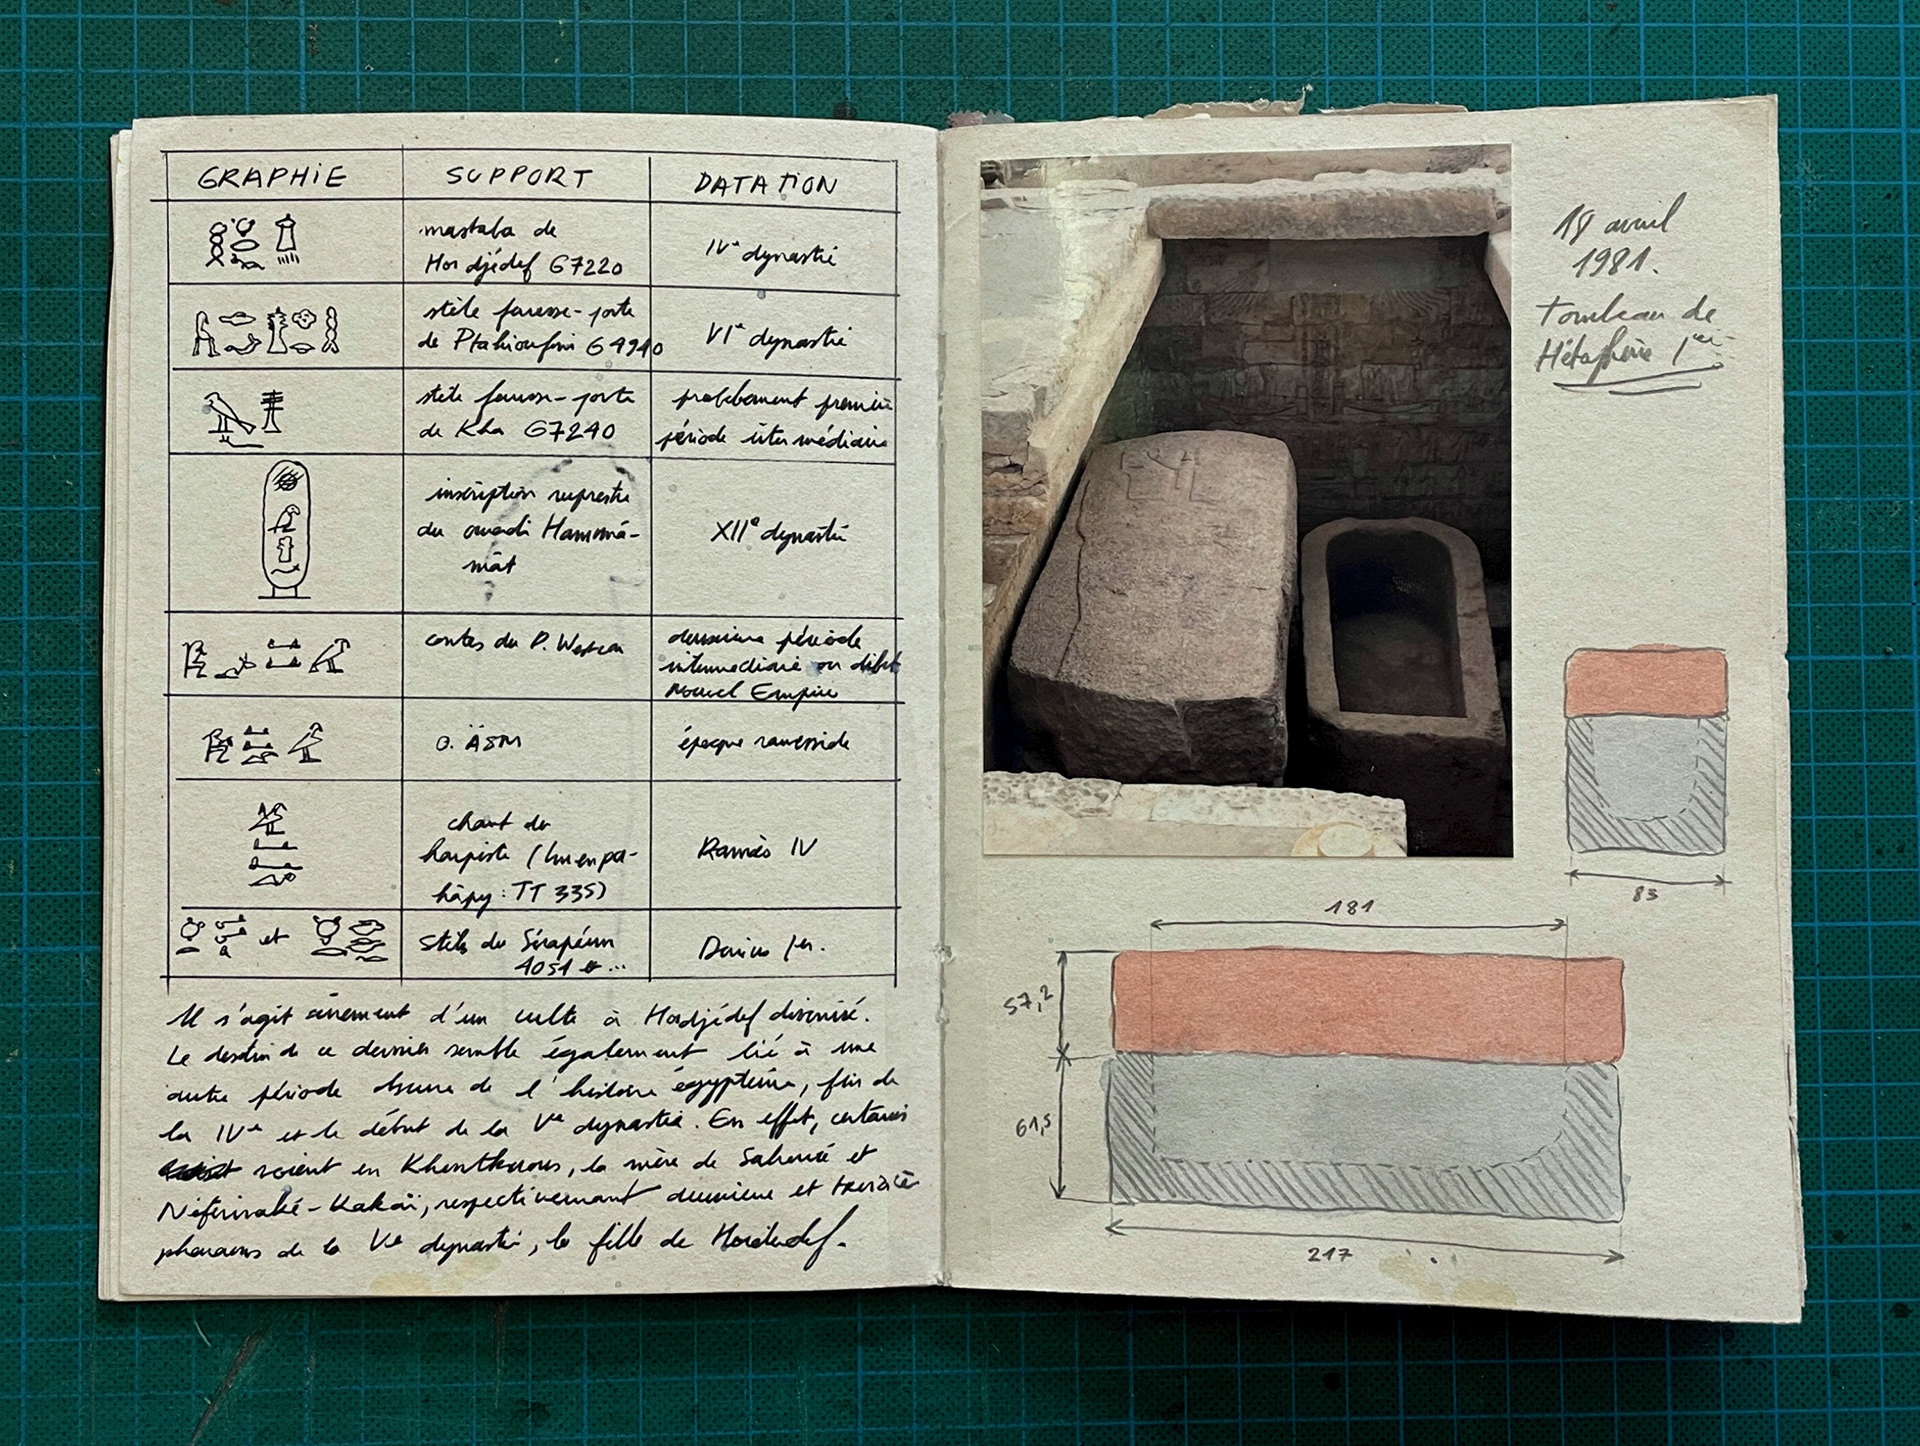 GRAPHIE SUPPORT DATATION
mastaba de
Hordjédef G7220
IVe dynastie
stèle fausse-porte
de Ptahioufni G 4940
VIe dynastie
stèle fausse-porte
de Kha G7240
probablement première
période intermédiaire
inscription rupestre
du ouadi Hammâ-
mât
XIIe dynastie
contes du P. Westcar
deuxième période
intermédiaire ou début
Nouvel Empire
O. ÄSM
époque ramesside
chant du
harpiste (
hâpy : TT 335)
Ramsès IV
et
stèles du Sérapéum
4051 et ...
Darius Ier.
Il s'agit sûrement d'un culte à Hordjédef divinisé.
Le destin de ce dernier semble également lié à une
autre période obscure de l'histoire égyptienne, fin de
la IVe et le début de la Ve dynastie. En effet, certains
voient en Khentkaous, la mère de Sahourê et
Néferirakê-Kakaï, respectivement deuxième et troisième
pharaons de la Ve dynastie, la fille de Hordjedef.
18 avril
1981.
Tombeau de
Hétephérès Ier
83
181
57,2
61,5
217